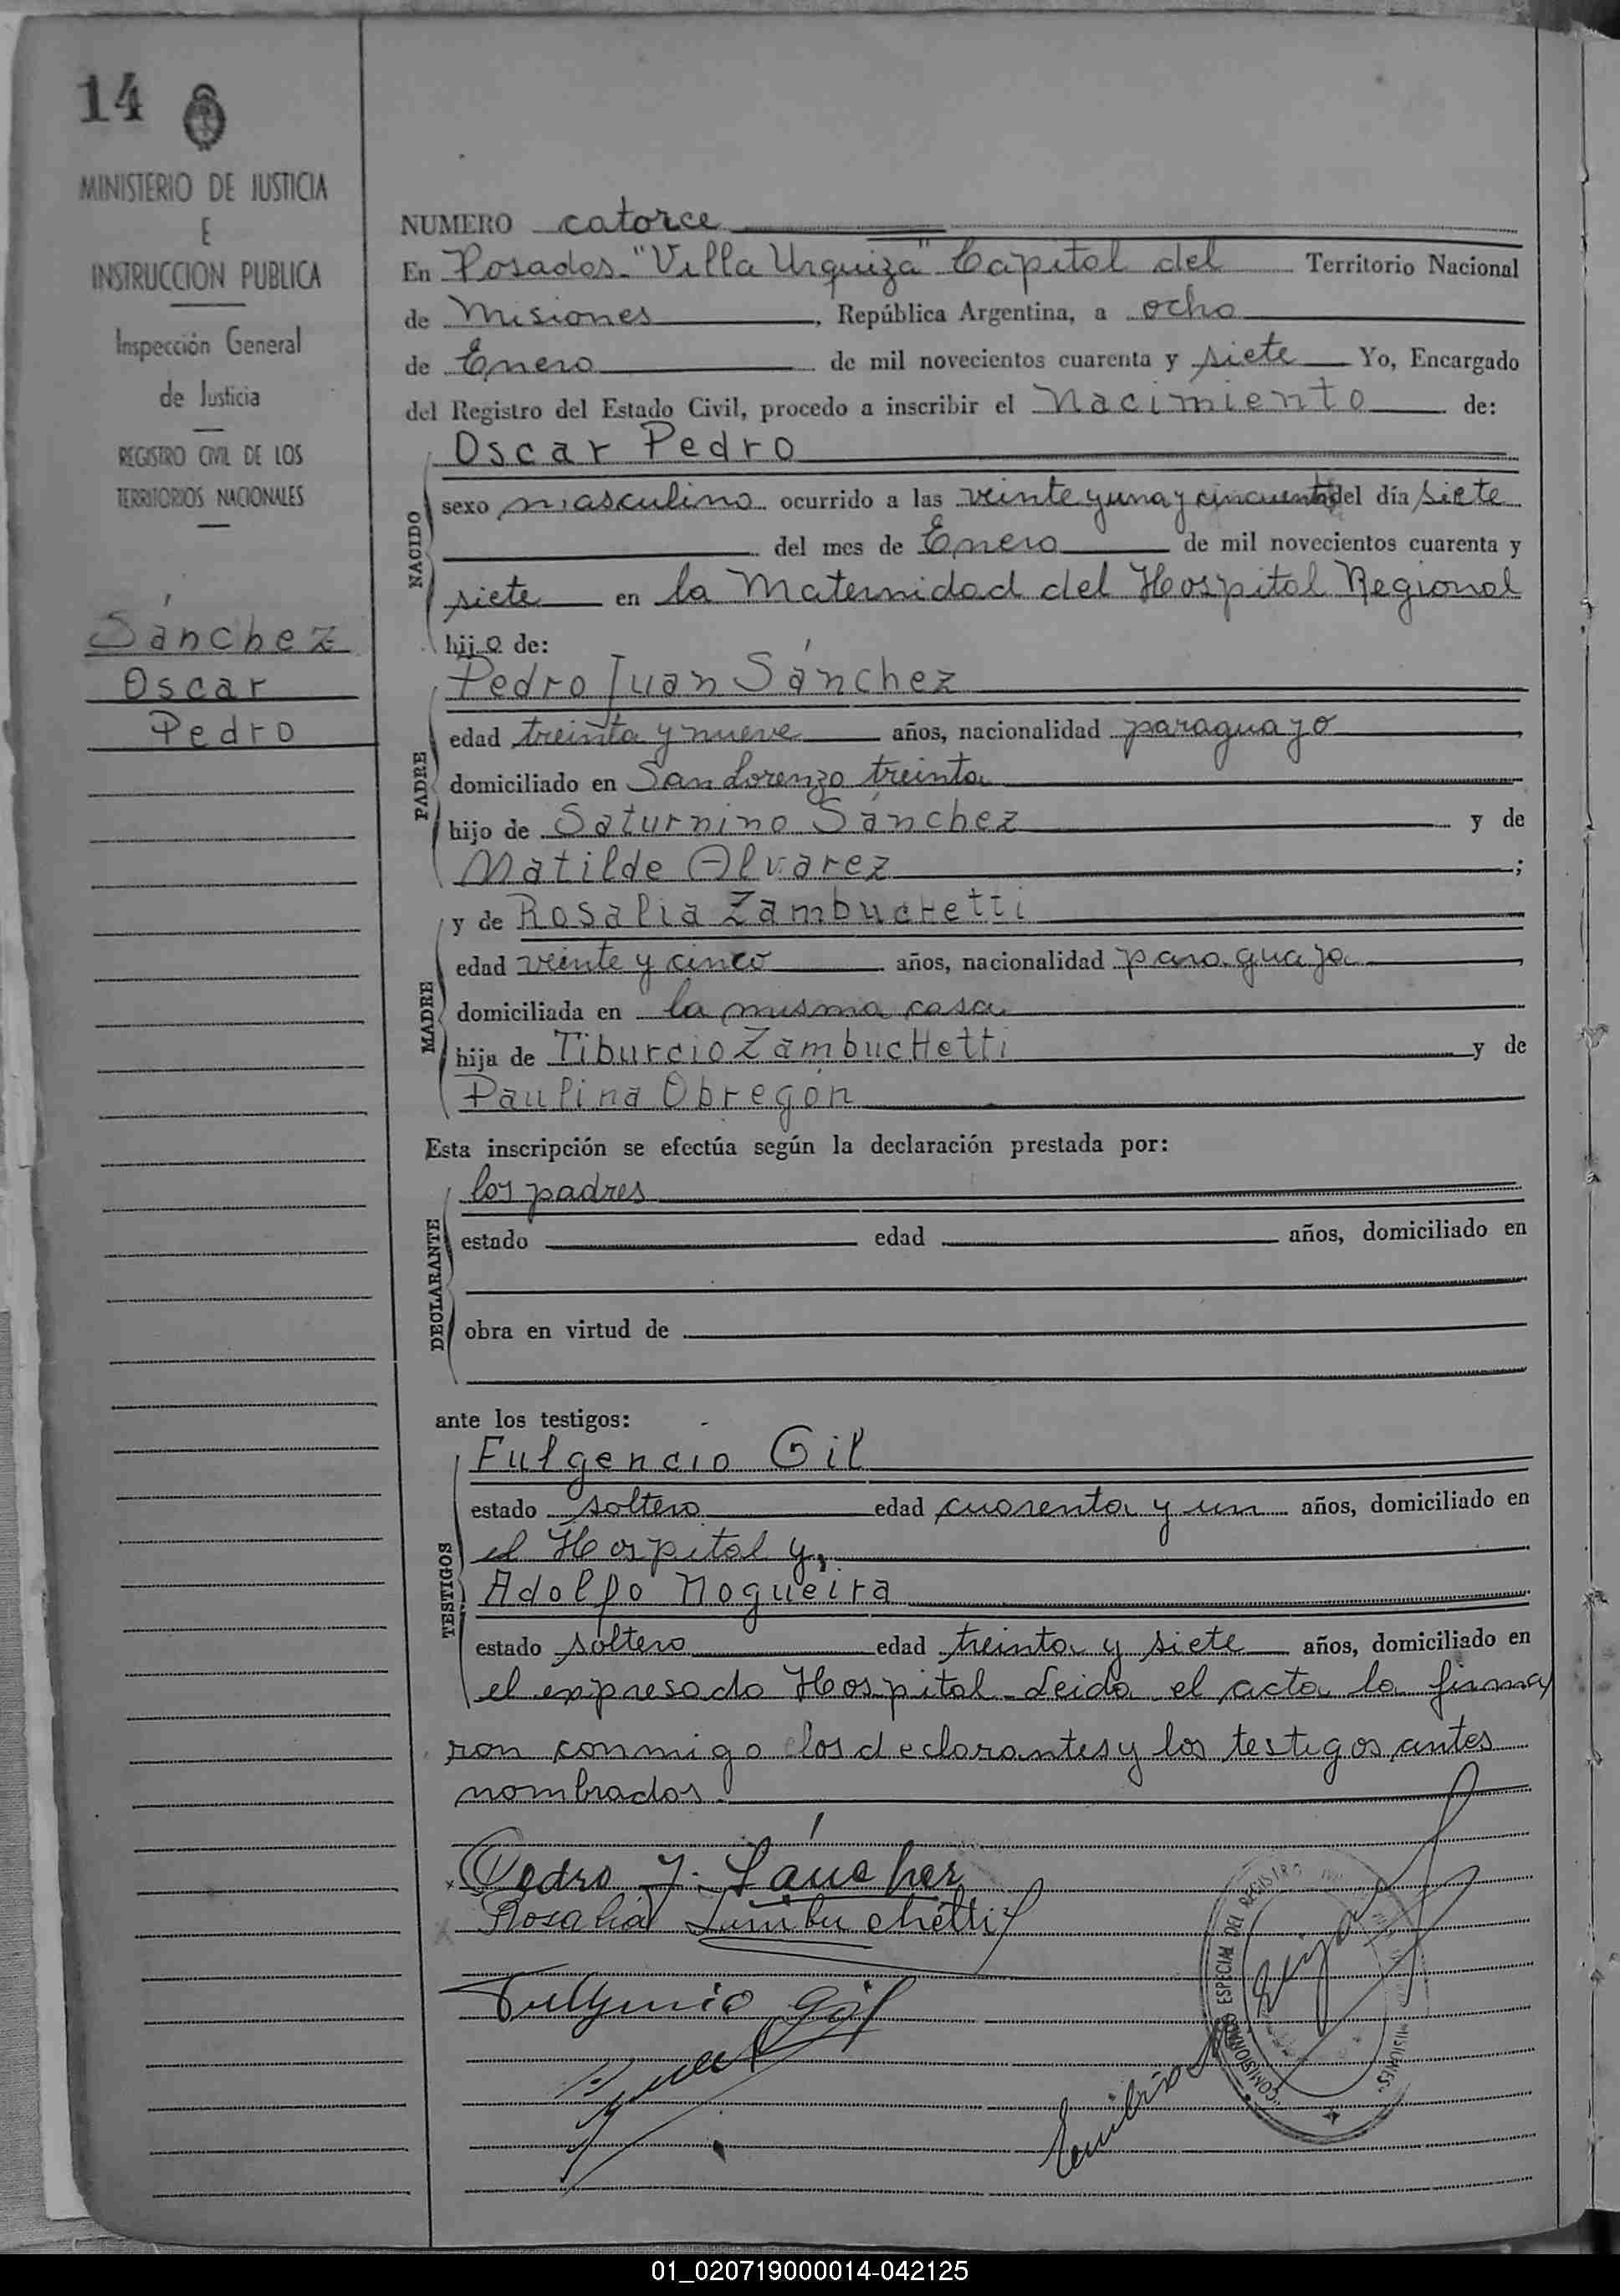 14
MINISTERIO DE JUSTICIA
E
INSTRUCCION PUBLICA
Inspección General
de Justicia
REGISTRO CIVIL DE LOS
TERRITORIOS NACIONALES
Sánchez
Oscar
Pedro
NUMERO catorce
En Posadas - "Villa Urquiza" Capital del Territorio Nacional
de Misiones, República Argentina, a ocho
de Enero de mil novecientos cuarenta y siete Yo, Encargado
del Registro del Estado Civil, procedo a inscribir el Nacimiento de:
Oscar Pedro
NACIDO
sexo masculino ocurrido a las veinte y una y cincuenta del día siete
del mes de Enero de mil novecientos cuarenta y
siete en la Maternidad del Hospital Regional
hijo de:
Pedro Juan Sánchez
PADRE
edad treinta y nueve años, nacionalidad paraguayo,
domiciliado en San Lorenzo treinta
hijo de Saturnino Sánchez y de
Matilde Alvarez;
y de Rosalia Zambuchetti
MADRE
edad veinte y cinco años, nacionalidad paraguaya,
domiciliada en la misma casa
hija de Tiburcio ZambucHetti y de
Paulina Obregón
Esta inscripción se efectúa según la declaración prestada por:
los padres
DECLARANTE
estado edad años, domiciliado en
obra en virtud de
ante los testigos:
Fulgencio Gil
TESTIGOS
estado soltero edad cuarenta y un años, domiciliado en
el Hospital y,
Adolfo Nogueira
estado soltero edad treinta y siete años, domiciliado en
el expresado Hospital - Leida el acta la firma
ron conmigo los declarantes y los testigos antes
nombrados.
Pedro J. Sánchez
Rosalia Zambuchetti
Fulgencio Gil
COMISIONADO ESPECIAL DEL REGISTRO
MISIONES
01_020719000014-042125